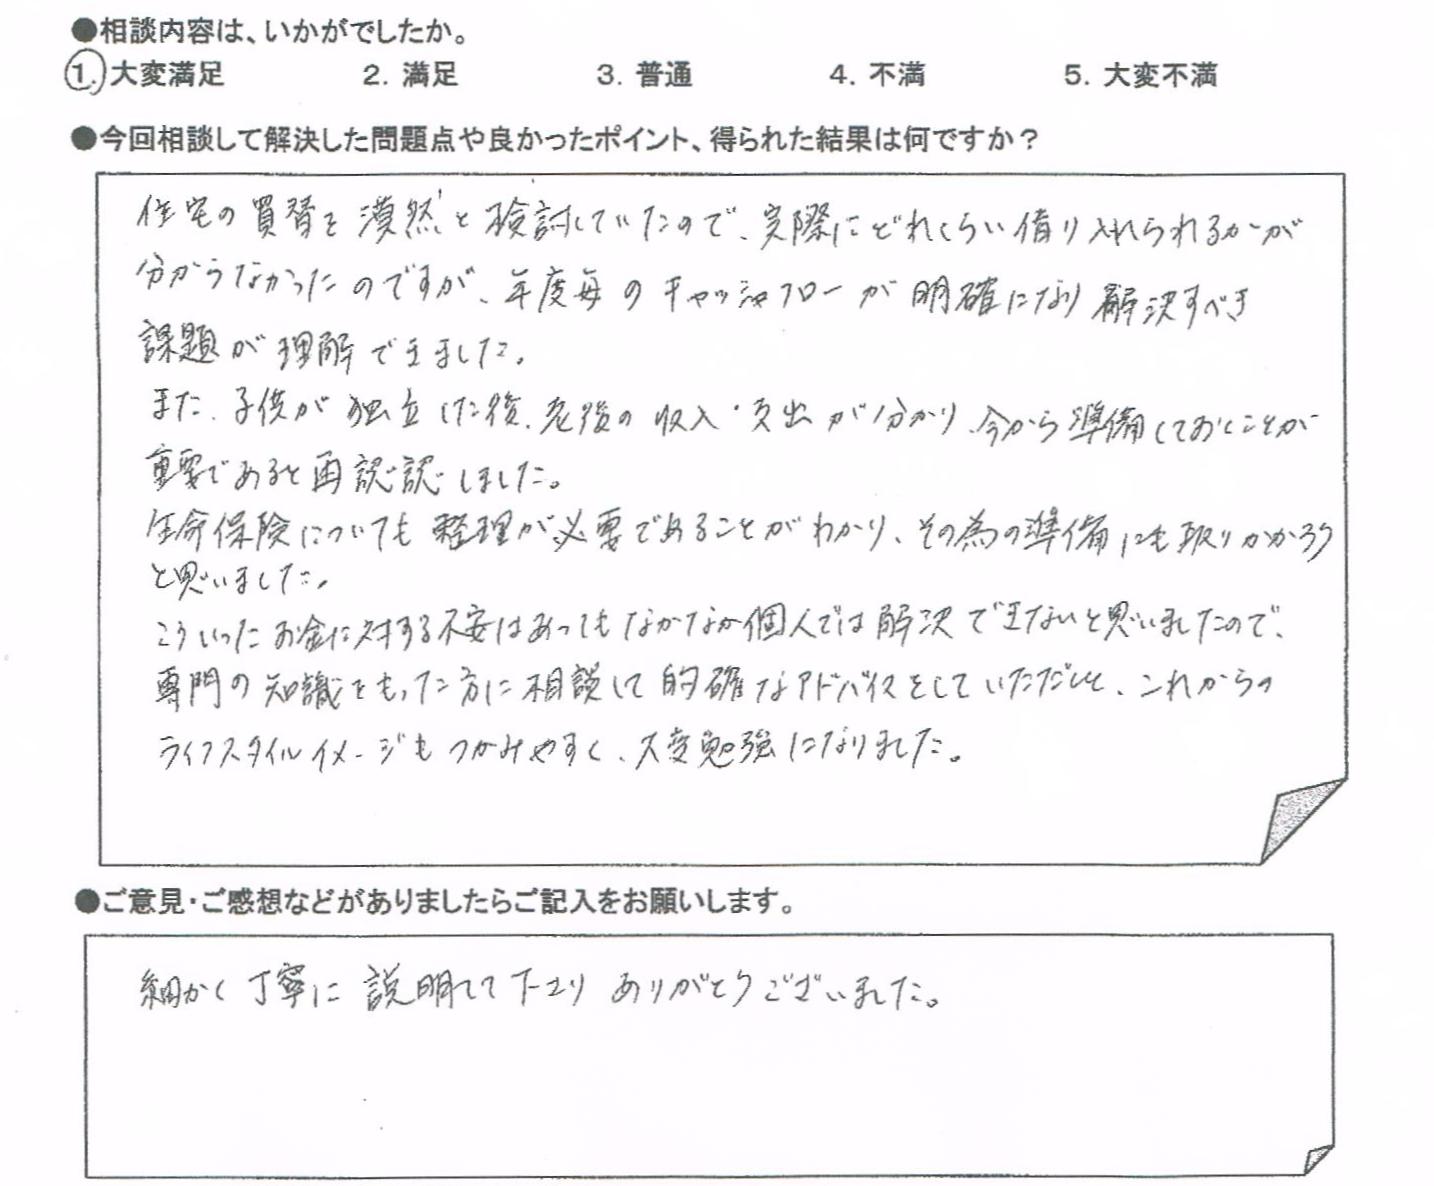 ●相談内容は、いかがでしたか。
1. 大変満足 2. 満足 3. 普通 4. 不満 5. 大変不満
●今回相談して解決した問題点や良かったポイント、得られた結果は何ですか？
住宅の買替を漠然と検討していたので、実際にどれくらい借り入れられるかが
分からなかったのですが、年度毎のキャッシュフローが明確になり解決すべき
課題が理解できました。
また、子供が独立した後、老後の収入・支出が分かり、今から準備しておくことが
重要であると再認認しました。
生命保険についても整理が必要であることがわかり、その為の準備にも取りかかろう
と思いました。
こういったお金に対する不安はあってもなかなか個人では解決できないと思いましたので、
専門の知識をもった方に相談して的確なアドバイスをしていただだいと、これからの
ライフスタイルイメージもつかみやすく、大変勉強になりました。
●ご意見・ご感想などがありましたらご記入をお願いします。
細かく丁寧に説明して下さり ありがとうございました。